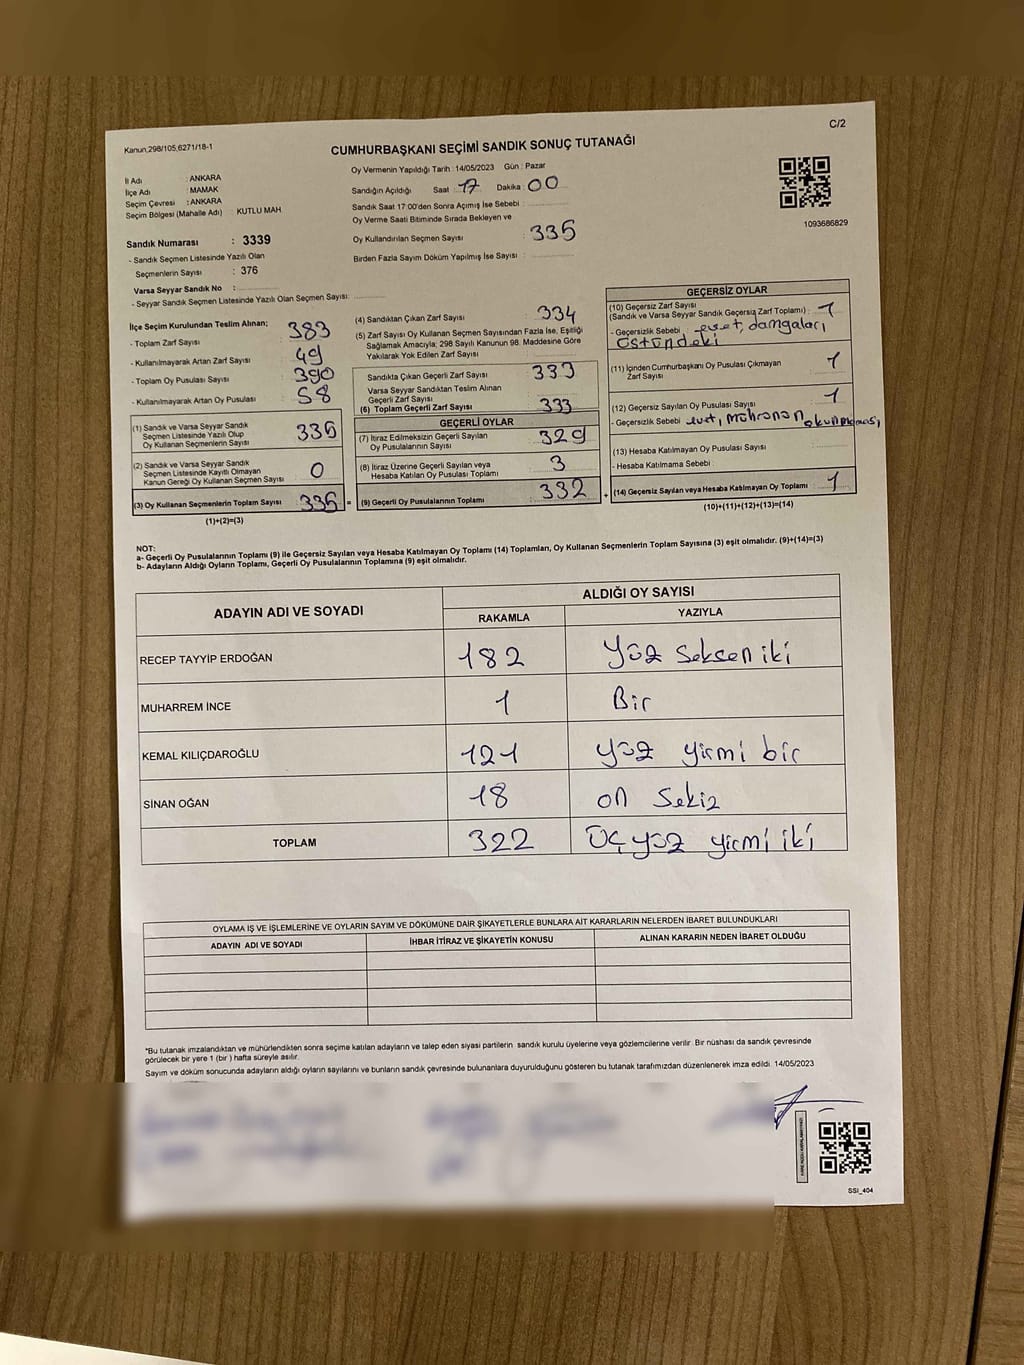 C/2
Kanun,298/105,6271/18-1
CUMHURBAŞKANI SEÇİMİ SANDIK SONUÇ TUTANAĞI
İl Adı : ANKARA
İlçe Adı : MAMAK
Seçim Çevresi : ANKARA
Seçim Bölgesi (Mahalle Adı) : KUTLU MAH
Sandık Numarası : 3339
- Sandık Seçmen Listesinde Yazılı Olan
Seçmenlerin Sayısı : 376
Varsa Seyyar Sandık No :
- Seyyar Sandık Seçmen Listesinde Yazılı Olan Seçmen Sayısı:
Oy Vermenin Yapıldığı Tarih : 14/05/2023 Gün : Pazar
Sandığın Açıldığı Saat 17 Dakika : 00
Sandık Saat 17:00'den Sonra Açımış İse Sebebi :
Oy Verme Saati Bitiminde Sırada Bekleyen ve
Oy Kullandırılan Seçmen Sayısı : 335
Birden Fazla Sayım Döküm Yapılmış İse Sayısı :
1093686829
İlçe Seçim Kurulundan Teslim Alınan;
- Toplam Zarf Sayısı : 383
- Kullanılmayarak Artan Zarf Sayısı : 49
- Toplam Oy Pusulası Sayısı : 390
- Kullanılmayarak Artan Oy Pusulası : 58
(1) Sandık ve Varsa Seyyar Sandık
Seçmen Listesinde Yazılı Olup
Oy Kullanan Seçmenlerin Sayısı : 335
(2) Sandık ve Varsa Seyyar Sandık
Seçmen Listesinde Kayıtlı Olmayan
Kanun Gereği Oy Kullanan Seçmen Sayısı : 0
(3) Oy Kullanan Seçmenlerin Toplam Sayısı : 335 =
(1)+(2)=(3)
(4) Sandıktan Çıkan Zarf Sayısı : 334
(5) Zarf Sayısı Oy Kullanan Seçmen Sayısından Fazla İse, Eşitliği
Sağlamak Amacıyla; 298 Sayılı Kanunun 98. Maddesine Göre
Yakılarak Yok Edilen Zarf Sayısı :
Sandıkta Çıkan Geçerli Zarf Sayısı : 333
Varsa Seyyar Sandıktan Teslim Alınan
Geçerli Zarf Sayısı :
(6) Toplam Geçerli Zarf Sayısı : 333
GEÇERLİ OYLAR
(7) İtiraz Edilmeksizin Geçerli Sayılan
Oy Pusulası Toplamı : 329
(8) İtiraz Üzerine Geçerli Sayılan veya
Hesaba Katılan Oy Pusulası Toplamı : 3
(9) Geçerli Oy Pusulalarının Toplamı : 332 +
GEÇERSİZ OYLAR
(10) Geçersiz Zarf Sayısı : 1
(Sandık ve Varsa Seyyar Sandık Geçersiz Zarf Toplamı)
- Geçersizlik Sebebi : evet, damgaları,
üstündeki
(11) İçinden Cumhurbaşkanı Oy Pusulası Çıkmayan
Zarf Sayısı : 1
(12) Geçersiz Sayılan Oy Pusulası Sayısı : 1
- Geçersizlik Sebebi evet, mührünün okunmaması,
(13) Hesaba Katılmayan Oy Pusulası Sayısı :
- Hesaba Katılmama Sebebi :
(14) Geçersiz Sayılan veya Hesaba Katılmayan Oy Toplamı : 1
(10)+(11)+(12)+(13)=(14)
NOT:
a- Geçerli Oy Pusulalarının Toplamı (9) ile Geçersiz Sayılan veya Hesaba Katılmayan Oy Toplamı (14) Toplamları, Oy Kullanan Seçmenlerin Toplam Sayısına (3) eşit olmalıdır. (9)+(14)=(3)
b- Adayların Aldığı Oyların Toplamı, Geçerli Oy Pusulalarının Toplamına (9) eşit olmalıdır.
ADAYIN ADI VE SOYADI
ALDIĞI OY SAYISI
RAKAMLA YAZIYLA
RECEP TAYYİP ERDOĞAN 182 yüz seksen iki
MUHARREM İNCE 1 Bir
KEMAL KILIÇDAROĞLU 121 yüz yirmi bir
SİNAN OĞAN 18 on sekiz
TOPLAM 322 üç yüz yirmi iki
OYLAMA İŞ VE İŞLEMLERİNE VE OYLARIN SAYIM VE DÖKÜMÜNE DAİR ŞİKAYETLERLE BUNLARA AİT KARARLARIN NELERDEN İBARET BULUNDUKLARI
ADAYIN ADI VE SOYADI İHBAR İTİRAZ VE ŞİKAYETİN KONUSU ALINAN KARARIN NEDEN İBARET OLDUĞU
*Bu tutanak imzalandıktan ve mühürlendikten sonra seçime katılan adayların ve talep eden siyasi partilerin sandık kurulu üyelerine veya gözlemcilerine verilir. Bir nüshası da sandık çevresinde
görülecek bir yere 1 (bir ) hafta süreyle asılır.
Sayım ve döküm sonucunda adayların aldığı oyların sayılarını ve bunların sandık çevresinde bulunanlara duyurulduğunu gösteren bu tutanak tarafımızdan düzenlenerek imza edildi. 14/05/2023
SSI_404